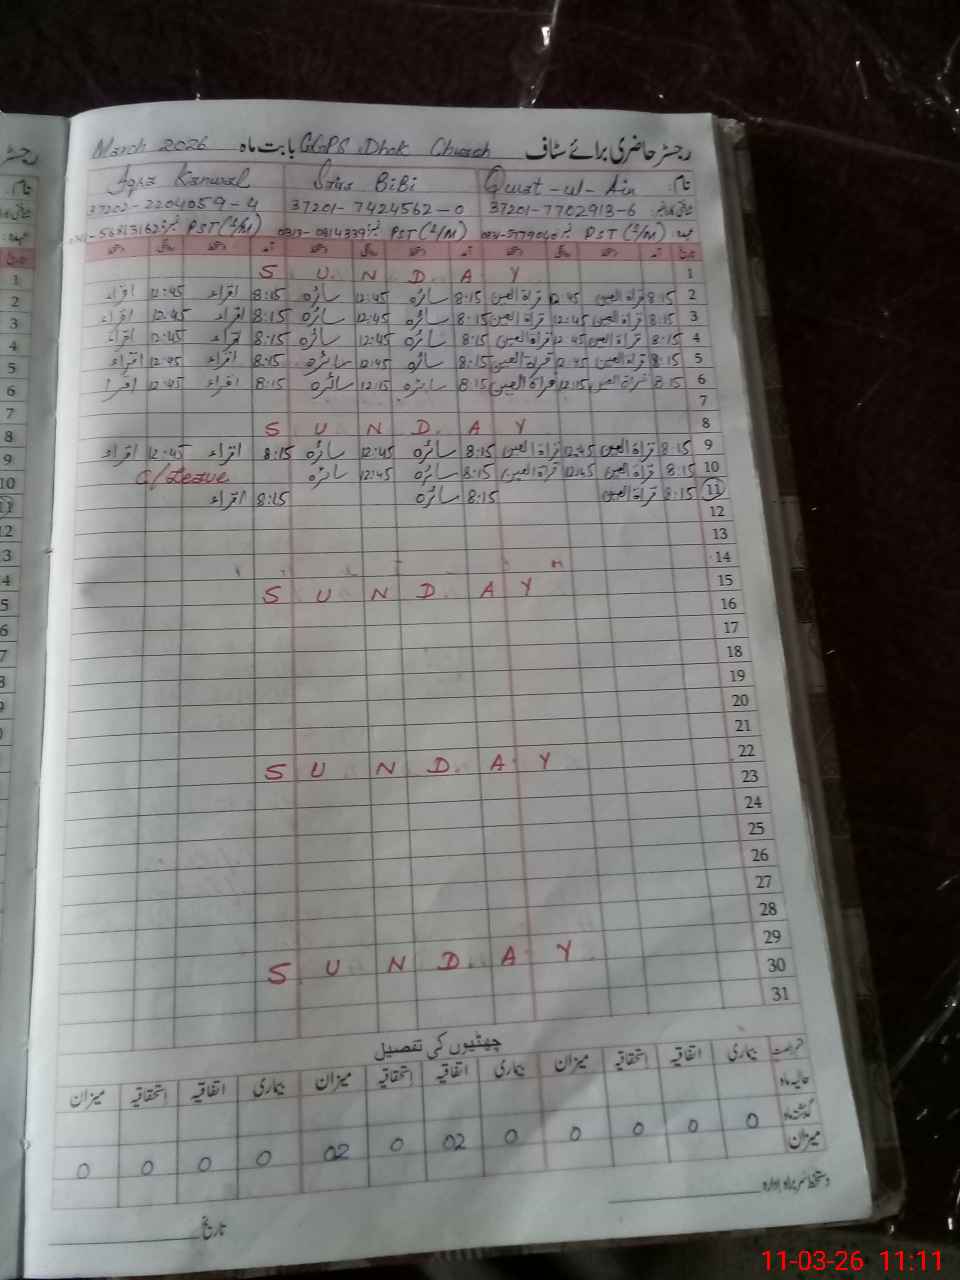 رجسٹر حاضری برائے سٹاف GGPS Dhok Church بابت ماہ March 2026
نام Qurat-ul-Ain Saira BiBi Iqra Kanwal
37201-7702913-6 37201-7424562-0 37202-2204059-4
PST (F/M) PST (F/M) PST (F/M)
1 S U N D A Y
2 8:15 قراۃالعین 12:45 قراۃالعین 8:15 سائرہ 12:45 سائرہ 8:15 اقراء 12:45 اقراء
3 8:15 قراۃالعین 12:45 قراۃالعین 8:15 سائرہ 12:45 سائرہ 8:15 اقراء 12:45 اقراء
4 8:15 قراۃالعین 12:45 قراۃالعین 8:15 سائرہ 12:45 سائرہ 8:15 اقراء 12:45 اقراء
5 8:15 قراۃالعین 12:45 قراۃالعین 8:15 سائرہ 12:45 سائرہ 8:15 اقراء 12:45 اقراء
6 8:15 قراۃالعین 12:15 قراۃالعین 8:15 سائرہ 12:15 سائرہ 8:15 اقراء 12:45 اقراء
7
8 S U N D A Y
9 8:15 قراۃالعین 12:45 قراۃالعین 8:15 سائرہ 12:45 سائرہ 8:15 اقراء 12:45 اقراء
10 8:15 قراۃالعین 12:45 قراۃالعین 8:15 سائرہ 12:45 سائرہ C/Leave
11 8:15 قراۃالعین 8:15 سائرہ 8:15 اقراء
12
13
14
15 S U N D A Y
16
17
18
19
20
21
22 S U N D A Y
23
24
25
26
27
28
29 S U N D A Y
30
31
چھٹیوں کی تفصیل
بیماری اتفاقیہ استحقاقیہ میزان بیماری اتفاقیہ استحقاقیہ میزان بیماری اتفاقیہ استحقاقیہ میزان
حالیہ ماہ
گذشتہ ماہ 0 0 0 0 0 02 0 02 0 0 0 0
میزان
دستخط سربراہ ادارہ
تاریخ
11-03-26 11:11